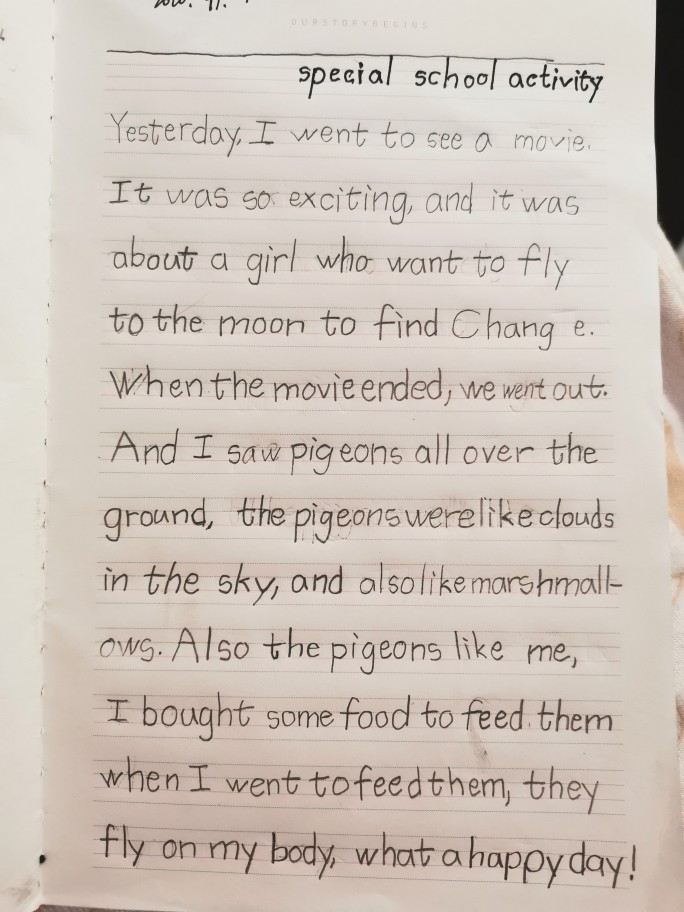 OURSTORYBEGINS
special school activity
Yesterday, I went to see a movie.
It was so exciting, and it was
about a girl who want to fly
to the moon to find Chang e.
When the movie ended, we went out.
And I saw pigeons all over the
ground, the pigeons were like clouds
in the sky, and also like marshmall-
ows. Also the pigeons like me,
I bought some food to feed them
when I went to feed them, they
fly on my body, what a happy day!